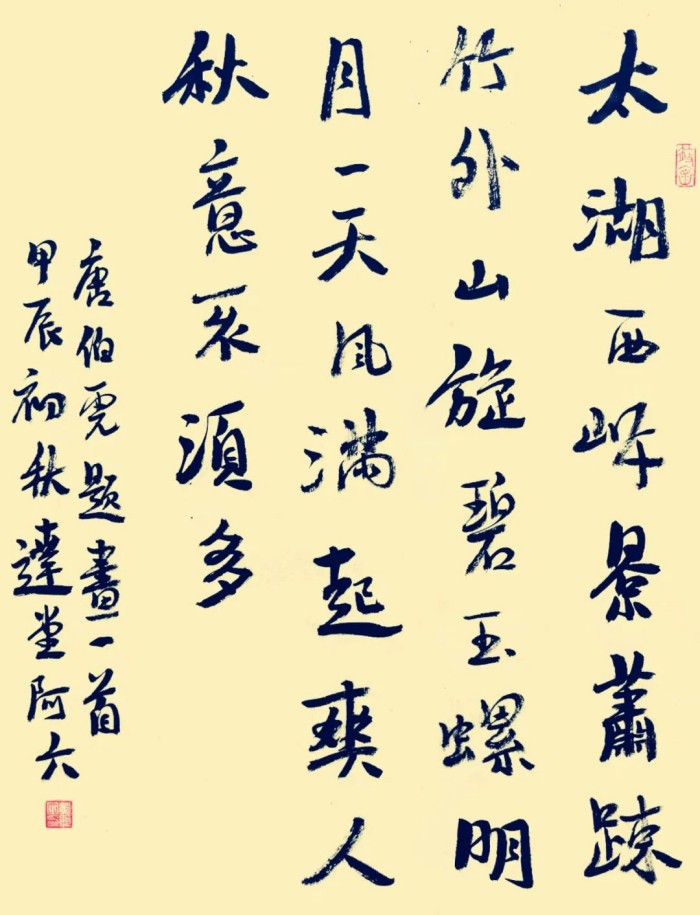 太湖西岸景蕭踈
竹外山旋碧玉螺明
月一天風滿起爽人
秋意不須多
唐伯虎題畫一首
甲辰初秋達堂阿六